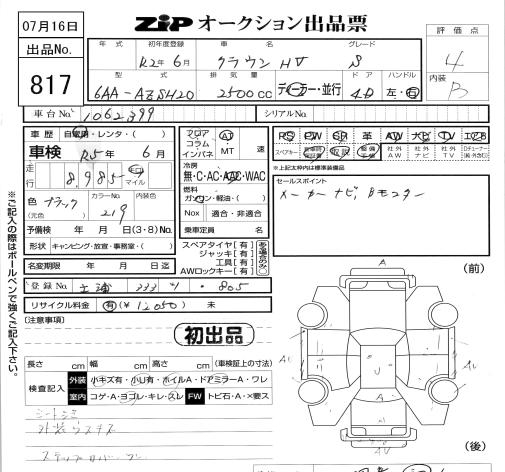 07月16日
ZIP オークション出品票
出品No.
817
評価点
4
内装
B
年式 初年度登録 車名 グレード
R2年6月 クラウン HV S
型式 排気量 ディーラー・並行 ドア ハンドル
6AA-AZSH20 2500cc 4D 左・右
車台No. 1062399
シリアルNo.
車歴 自家用・レンタ・( )
車検 R5年 6月
走行 8,985 km マイル
色 ブラック
(元色)
カラーNo. 219
内装色
予備検 年 月 日(3・8)No.
形状 キャンピング・放宣・事務室・( )
名変期限 年 月 日迄
登録No. 土浦 333 ・805
リサイクル料金 有(¥12050) 未
フロア
コラム
インパネ
AT
MT
冷房
無・C・AC・AAC・WAC
燃料
ガソリン・軽油・( )
Nox 適合・非適合
乗車定員 名
スペアタイヤ[有]
ジャッキ[有]
工具[有]
AWロックキー[有]
PS PW SR 革 AW ナビ TV エアB
スペアキー 取説
社外AW 社外ナビ 社外TV
※上記太枠内は標準装備品
セールスポイント
メーカーナビ, Bモニター
(注意事項)
初出品
長さ cm 幅 cm 高さ cm (車検証上の寸法)
検査記入
外装 小キズ有・小凹有・ホイルA・ドアミラーA・ワレ
室内 コゲA・ヨゴレ・キレ・スレ FW トビ石・A・×要ス
シートシミ
外装ウスキズ
(前)
A
A
(後)
※ご記入の際はボールペンで強くご記入下さい。